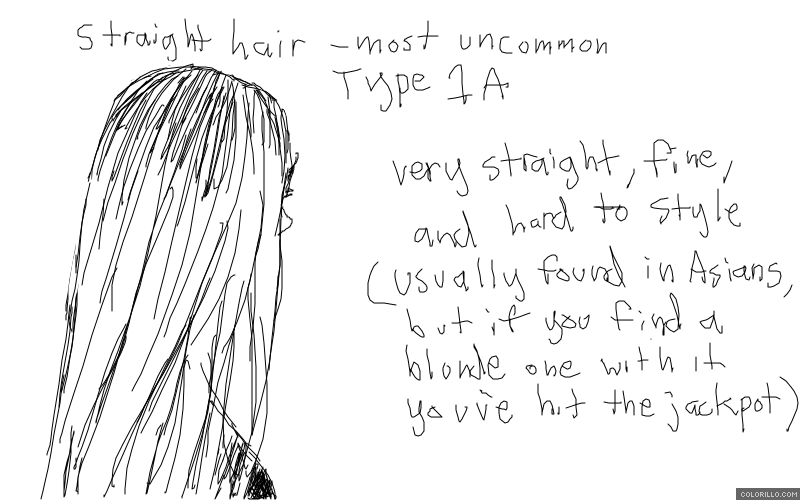 straight hair - most uncommon
Type 1A
very straight, fine,
and hard to style
(usually found in Asians,
but if you find a
blonde one with it
you've hit the jackpot)
COLORILLO.COM